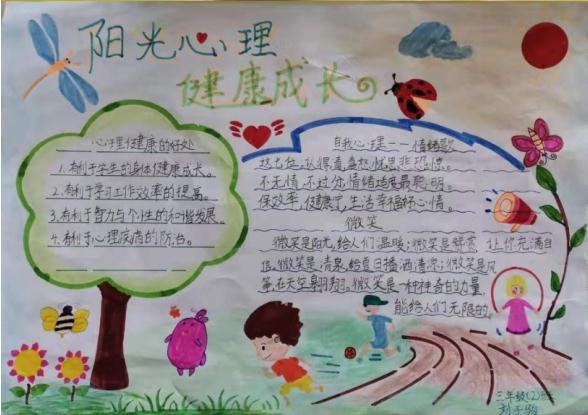 阳光心理
健康成长
心理健康的好处
1.有利于学生的身体健康成长。
2.有利于学习工作效率的提高。
3.有利于智力与个性的和谐发展。
4.有利于心理疾病的防治。
自我心理——情绪歌
不无情,不过分,情绪适度最聪明。
保效率,健康,生活幸福好心情。
微笑
微笑是阳光,给人们温暖;微笑是 让你充满自
信。微笑是清泉,给夏日播洒清凉;微笑是风
筝,在天空翱翔。微笑是一种神奇的力量,
能给人们无限的
三年级(2)班